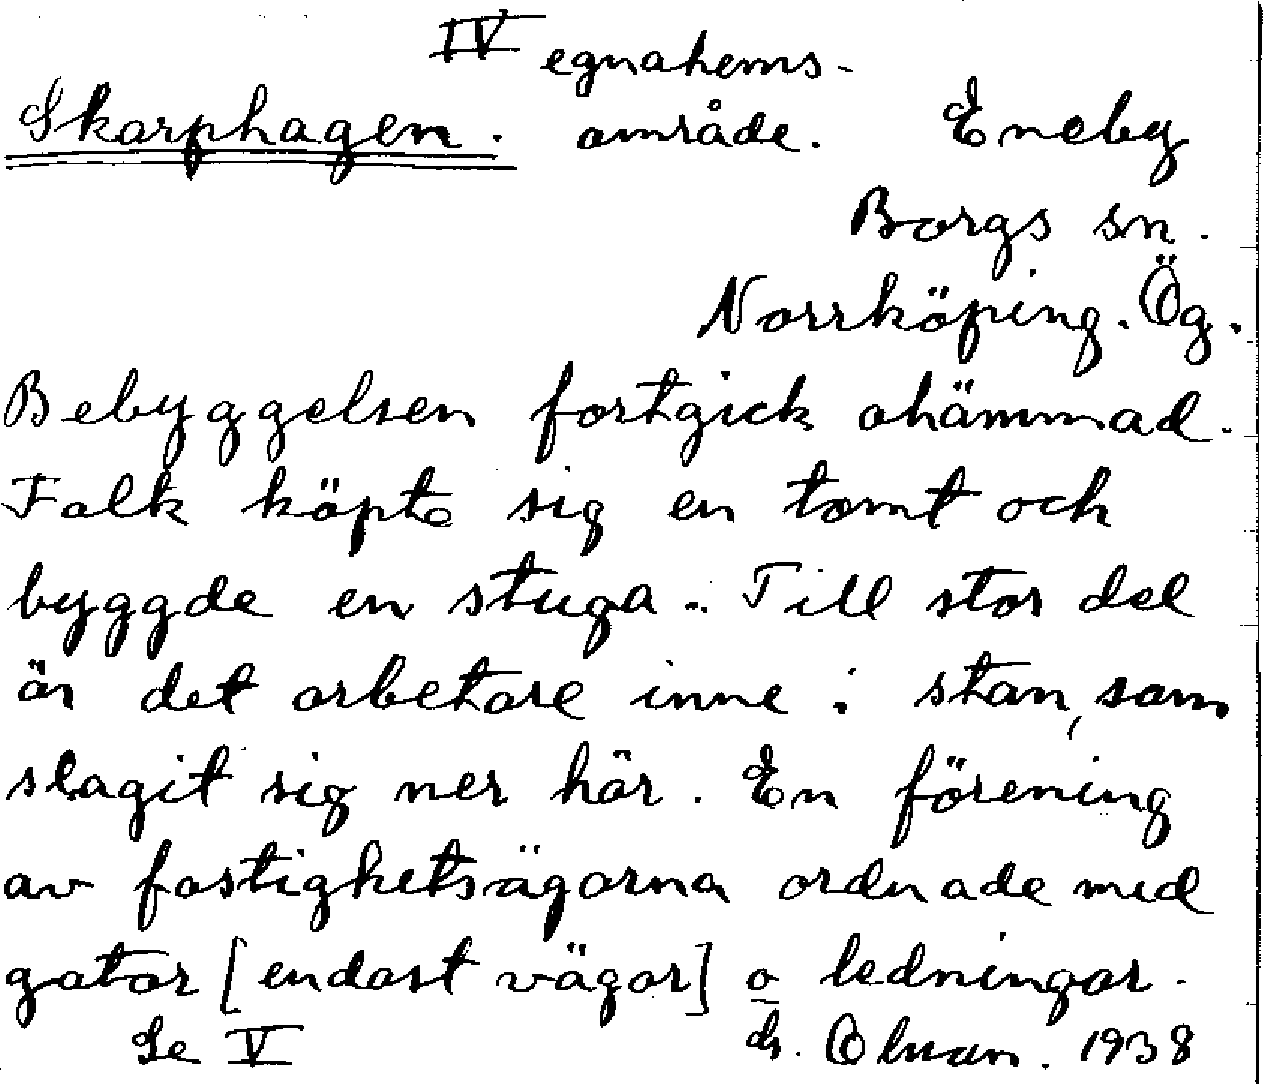 IV egnahems-
Skarphagen. område. Eneby
Borgs sn.
Norrköping. Ög.
Bebyggelsen fortgick ohämmad.
Folk köpte sig en tomt och
byggde en stuga.. Till stor del
är det arbetare inne i stan, som
slagit sig ner här. En förening
av fastighetsägarna ordnade med
gator [endast vägar] o ledningar.
Se V 1938